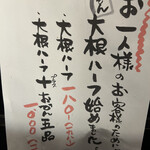 お一人様のお客様のために
大根ハーフ始めました
・大根ハーフ 一八〇
・大根ハーフ+おでん五品
一〇〇〇